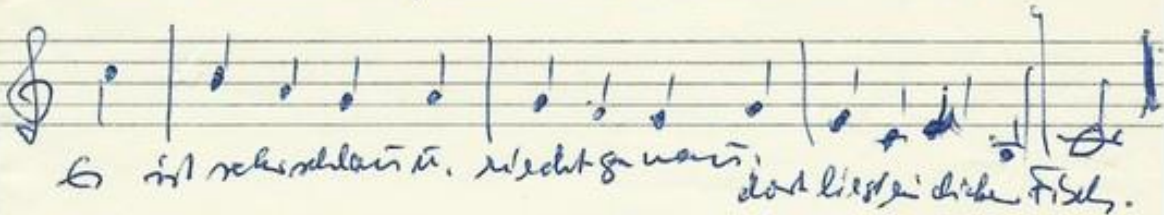 Es ist sehr schlau u. riecht genau:
dort liegt ein dicker Fisch.